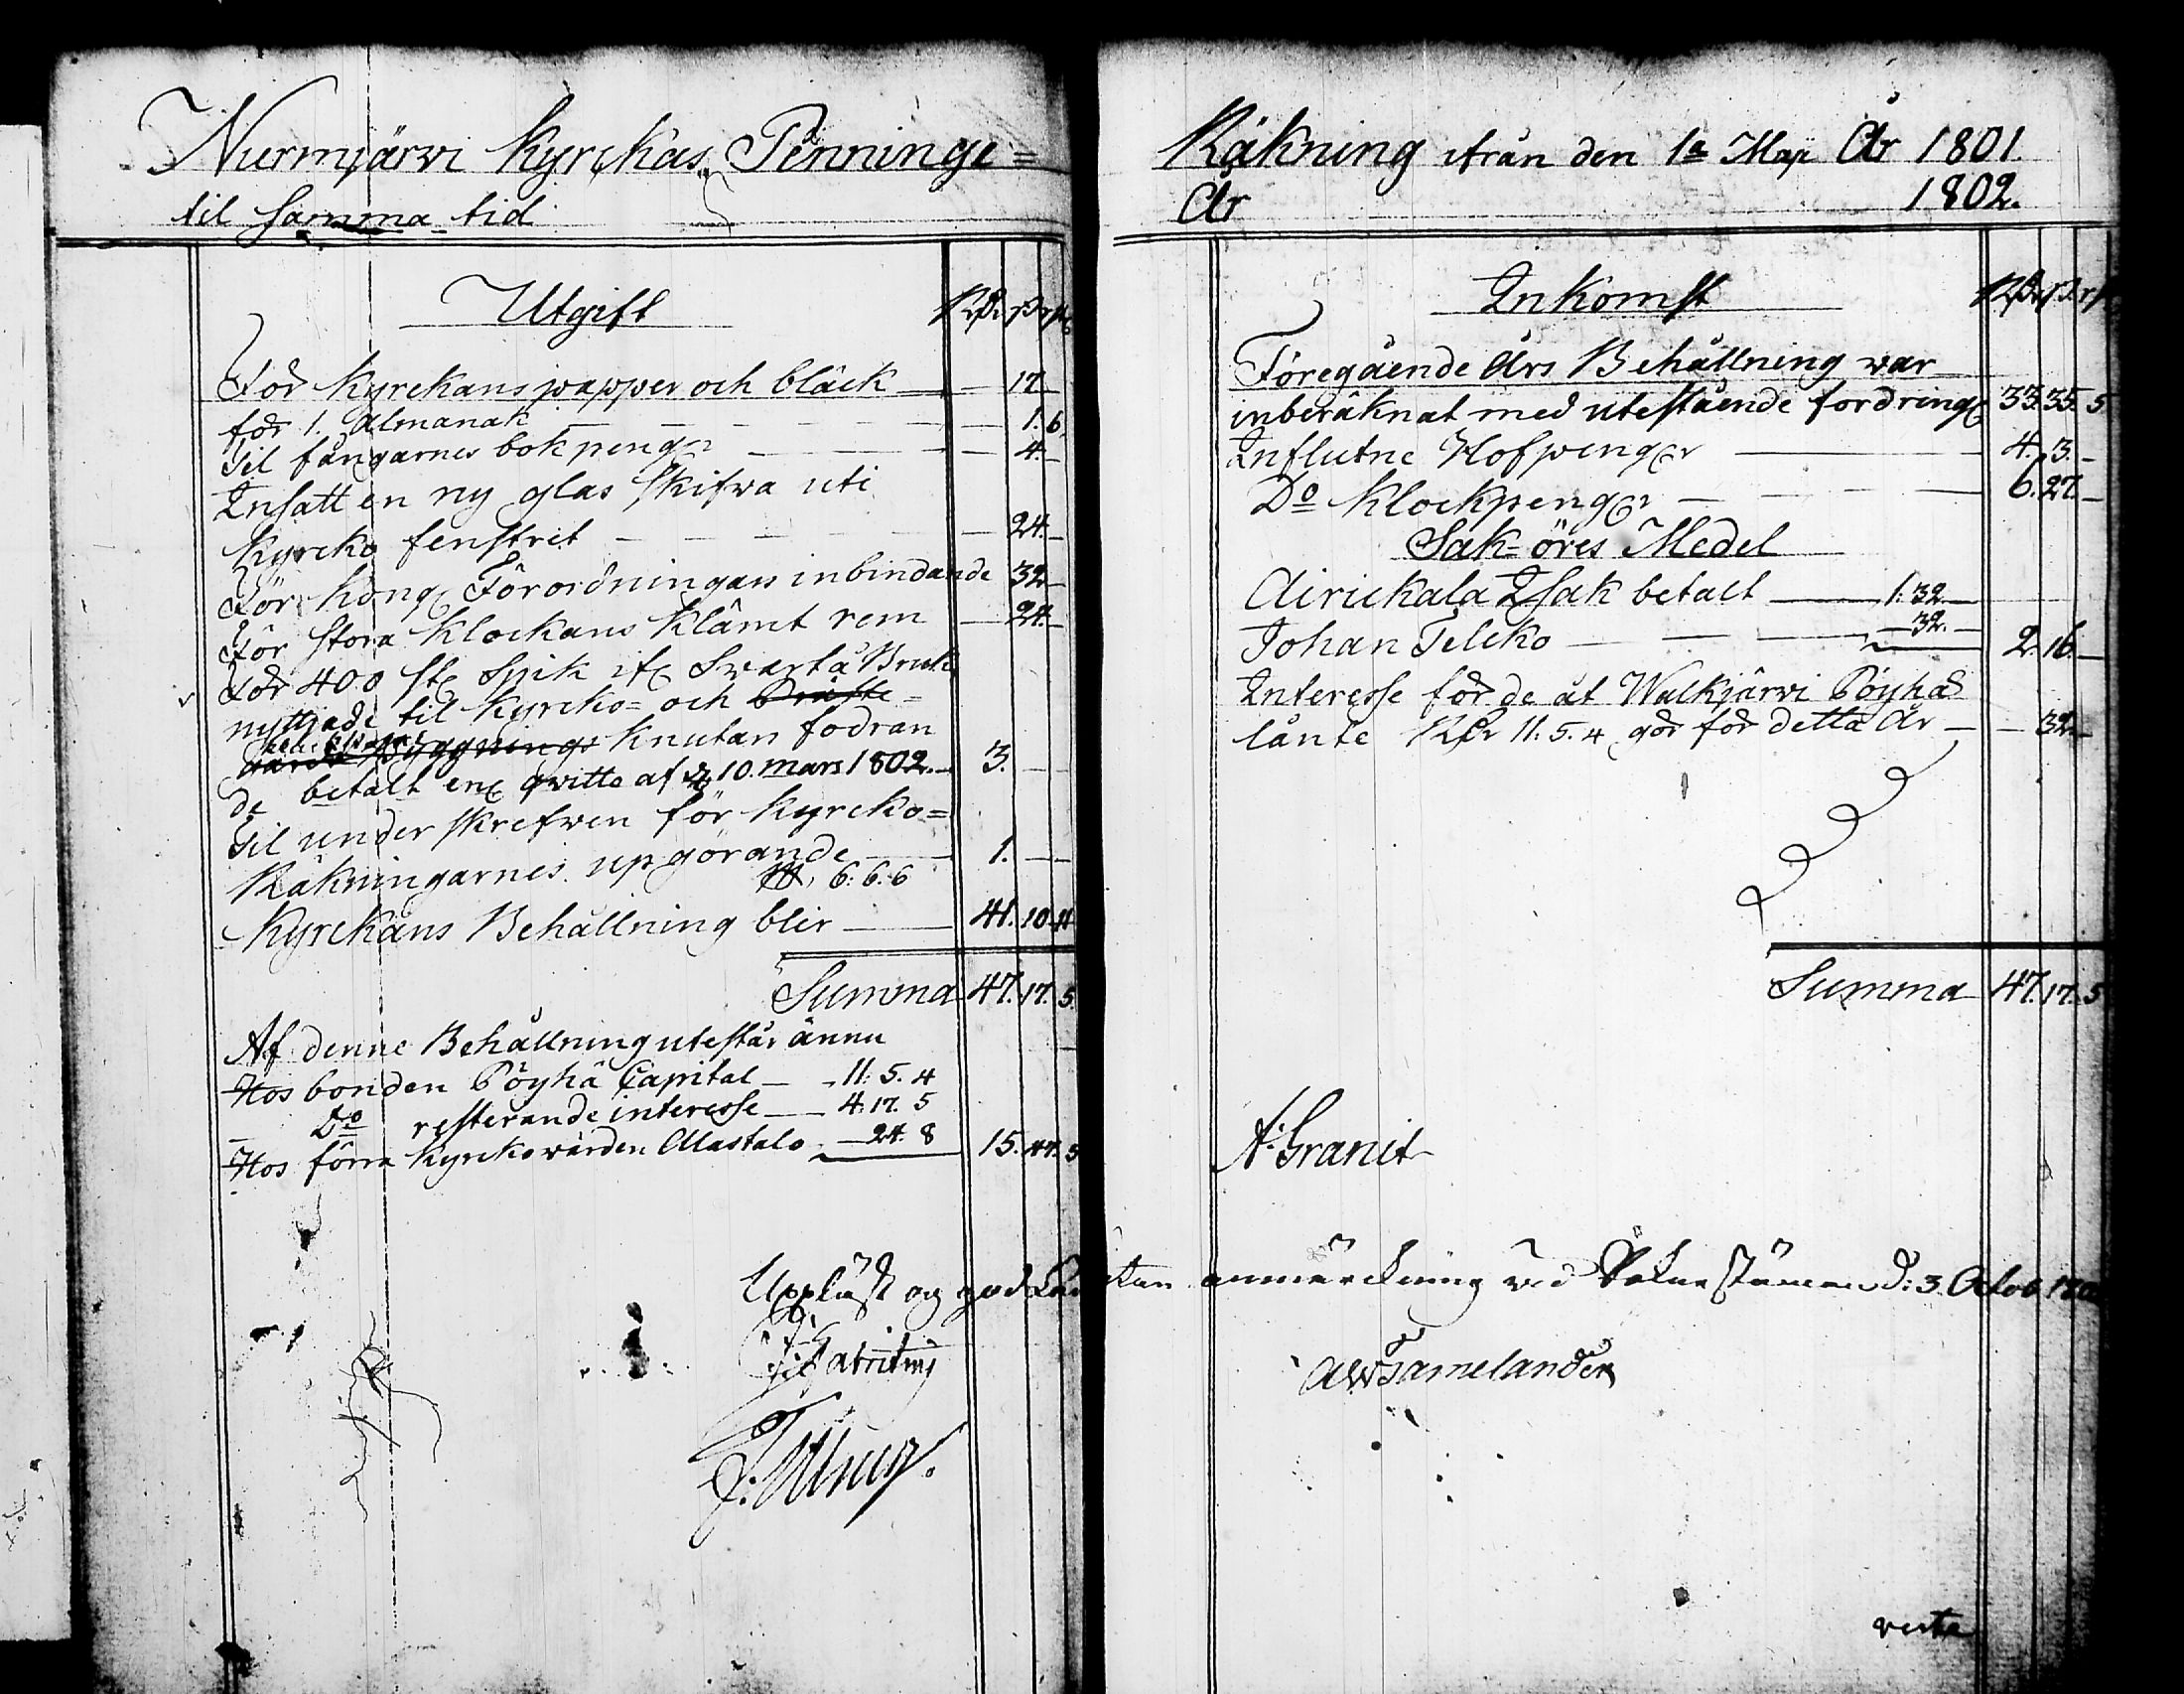 Nurmijärwi Kyrckas Penninge=
til samma tid
Utgift Rdr ß rst
För Kyrckans papper och bläck — — 17 —
för 1. Almanak — — 1. 6.
Til fångarnes bok penger — — 4. —
Insatt en ny glas skifwa uti
Kyrcko fenstret — — 24. —
För Kong Förordningars inbindande 32 —
För stora Klockans Klämt rem — 24. —
För 400 st Spik if Swartå Bruk
nyttjade til Kyrcko= och Präste=
gårds Byggnings Knutan fodran
de betalt en qvitto af d. 10. Mars 1802. — 3. — —
Til under skrefwen för Kyrcko=
Räkningarnes upgörande — 1. — —
6. 6. 6
Kyrckans Behållning blir — 41. 10. 11
Summa 47. 17. 5.
Af denne Behållning utestår ännu
Hos bonden Pöyhä Capital — 11: 5. 4
Do resterande interesse — 4. 17. 5
Hos förra Kyrckowärden Alastalo — 24. 8 15. 47. 5
Upläst og god
J: Ulnug.
Räkning ifrån den 1a Maji År 1801.
År 1802.
Inkomst Rdr ß rst
Föregående Års Behållning war
inberäknat med utestående fordring 33. 35. 5
Influtne Hofpenger — 4. 3. —
Do Klockpenger — 6. 27. —
Sak=öres Medel
Airickala Isak betalt — 1. 32 —
Johan Telcko — — 32. — 2. 16. —
Interesse för de åt Walkjärwi Pöyhä
lånte Rdr 11. 5. 4 gör för detta År — — 32. —
Summa 47. 17. 5
A: Granit
utan anmärckning vid Sokne stämman d: 3 Octob 1802
AWTamelander
verte